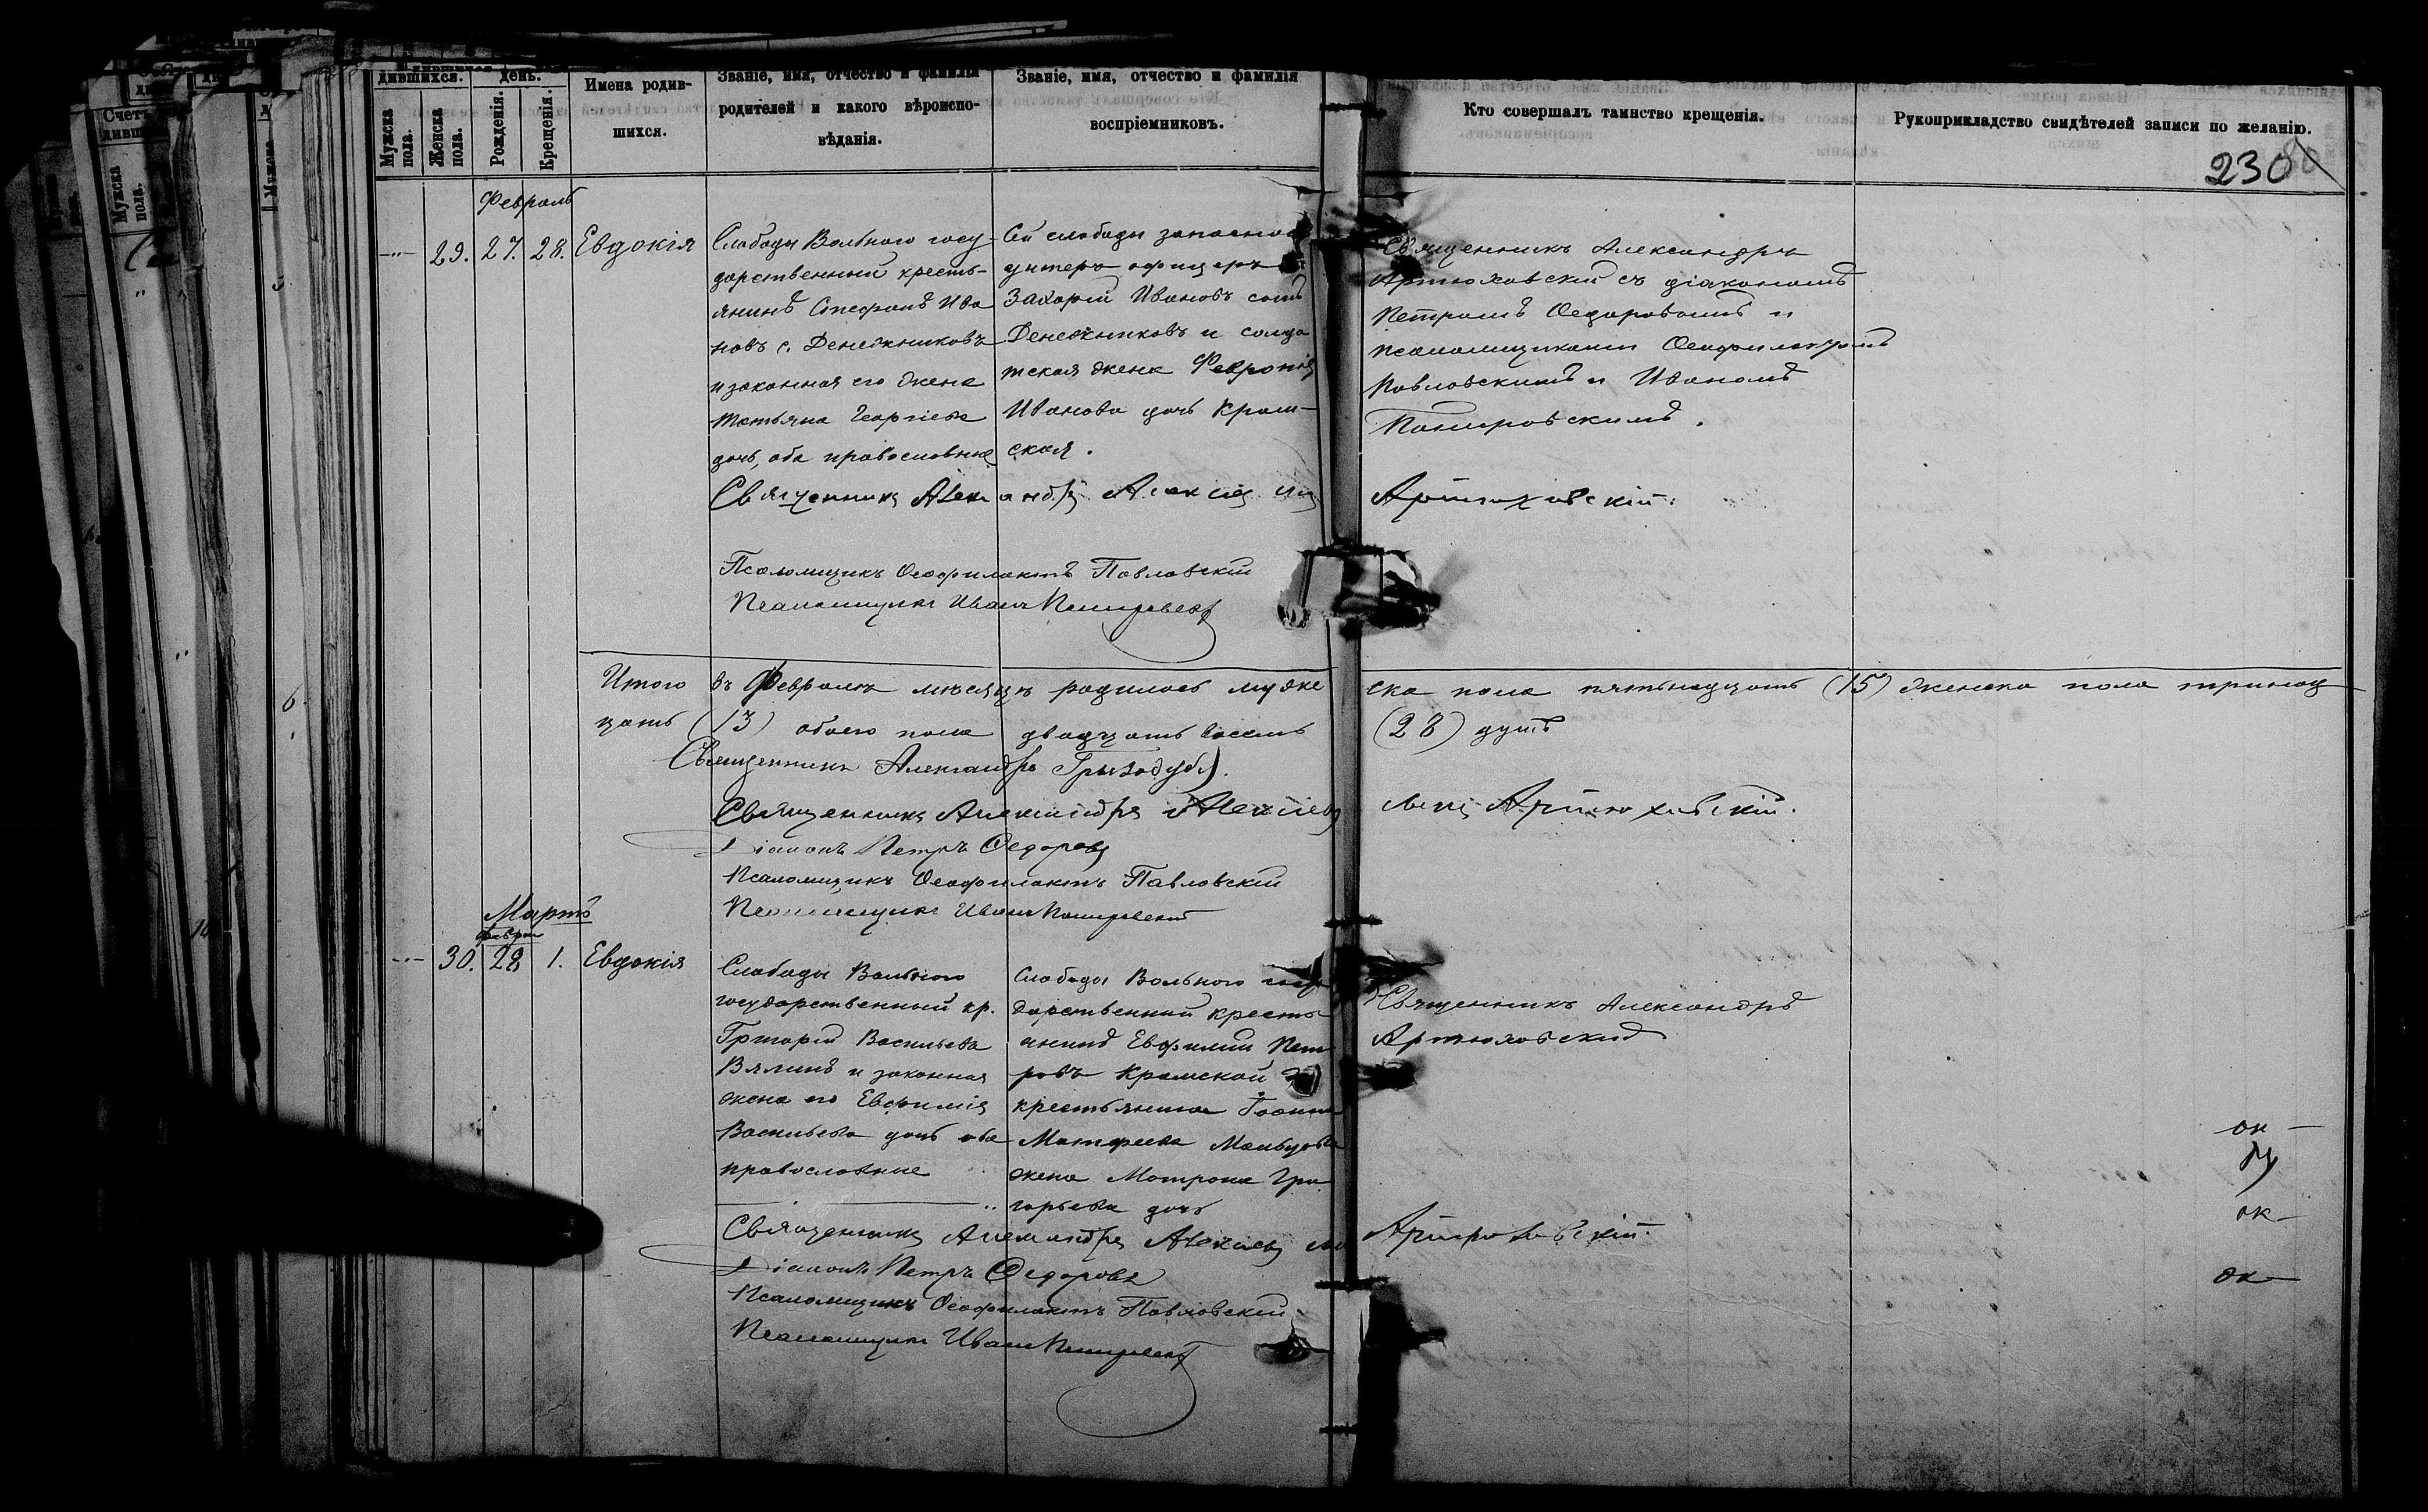 дившихся.
день.
Мужска пола.
Женска пола.
Рожденія.
Крещенія.
Имена родив-
шихся.
Званіе, имя, отчество и фамилія
родителей и какого вѣроиспо-
вѣданія.
Званіе, имя, отчество и фамилія
воспріемниковъ.
Кто совершалъ таинство крещенія.
Рукоприкладство свидѣтелей записи по желанію.
230
Февраль
29. 27. 28. Евдокія
Слободы Вольного госу-
дарственный кресть-
янинъ Стефанъ Ива
новъ с. Денежниковъ
и законная его жена
Татьяна Георгіева
дочь, оба православные
Сей слободы запасной
унтеръ офицеръ
Захарій Ивановъ сынъ
Денежниковъ и солда
тская жена Февронія
Иванова дочь Крам-
ская.
Священникъ Александръ
Артюховскій съ діакономъ
Петромъ Ѳедоровымъ и
псаломщиками Ѳеофилактомъ
Павловскимъ и Иваномъ
Священникъ Александръ Алексіевъ Артюховскій.
Псаломщикъ Ѳеофилактъ Павловскій
Псаломщикъ Иванъ
Итого въ Февралѣ мѣсяцѣ родилось муже ска пола пятьнадцать (15) женска пола тринад
цать (13) обоего пола двадцать восемь (28) душъ
Священникъ Александръ
Священникъ Александръ Алексіевъ Артюховскій.
Діаконъ Петръ Ѳедоровъ
Псаломщикъ Ѳеофилактъ Павловскій
Псаломщикъ Иванъ
Мартъ
феврал
30. 28 1. Евдокія
Слободы Вольного
государственный кр.
Григорій Васильевъ
Вялинъ и законная
жена его Евфимія
Васильева дочь оба
православные
Слободы Вольного госу
дарственный кресть
янинъ Евфимій Пет
ровъ Крамской и
крестьянина Іоанна
Матфеева
жена Матрона Гри
горьева дочь
Священникъ Александръ
Артюховскій
Священникъ Александръ Алексіевъ Артюховскій.
Діаконъ Петръ Ѳедоровъ
Псаломщикъ Ѳеофилактъ Павловскій
Псаломщикъ Иванъ
ок
ок
ок